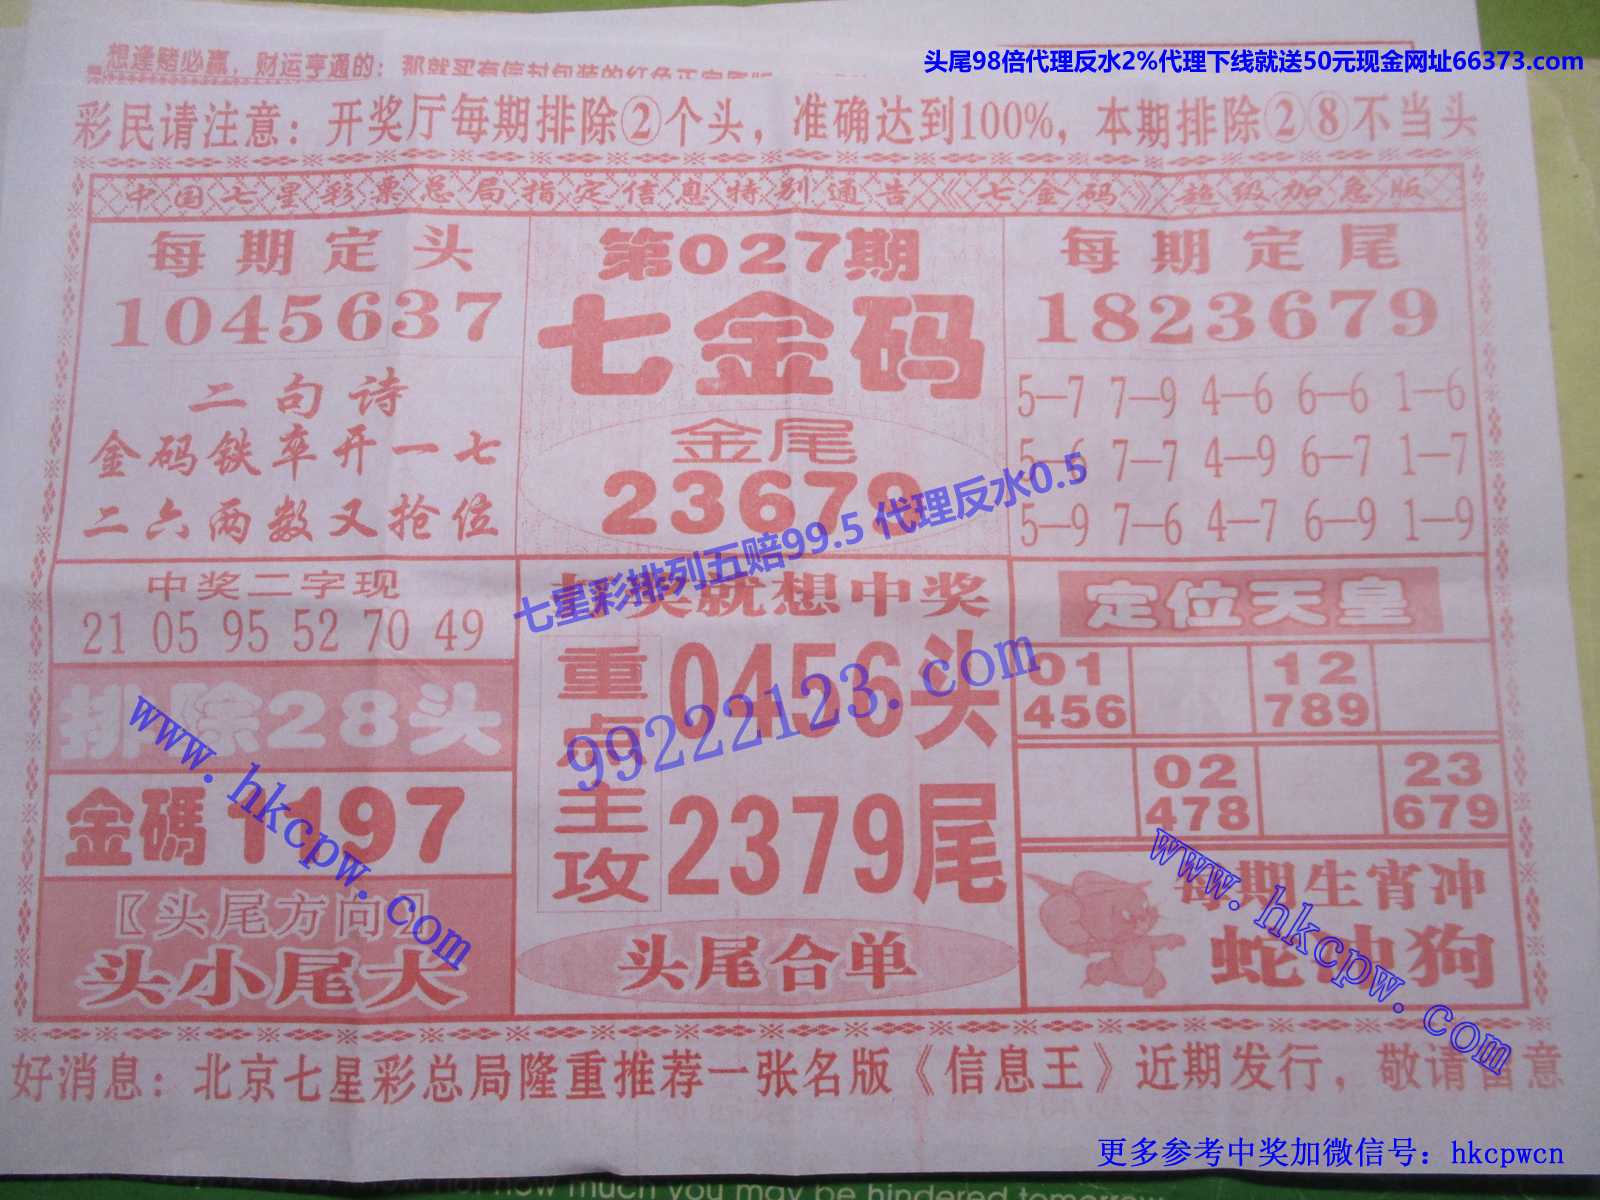 头尾98倍代理反水2%代理下线就送50元现金网址66373.com
想逢赌必赢，财运亨通的：那就买有信封包装的红色正宗
彩民请注意：开奖厅每期排除②个头，准确达到100%，本期排除②⑧不当头
中国七星彩票总局指定信息特别通告《七金码》超级加急版
每期定头
1045637
二句诗
金码铁率开一七
二六两数又抢位
第027期
七金码
金尾
23679
每期定尾
1823679
5—7 7—9 4—6 6—6 1—6
5—6 7—7 4—9 6—7 1—7
5—9 7—6 4—7 6—9 1—9
七星彩排列五赔99.5 代理反水0.5
99222123.com
中奖二字现
21 05 95 52 70 49
排除28头
金碼1197
〖头尾方向〗
头小尾大
www.hkcpw.com
奖就想中奖
重点主攻
0456头
2379尾
头尾合单
定位天皇
01 12
456 789
02 23
478 679
每期生宵冲
蛇冲狗
www.hkcpw.com
好消息：北京七星彩总局隆重推荐一张名版《信息王》近期发行，敬请留意
更多参考中奖加微信号：hkcpwcn
how much you may be hindered tomorrow